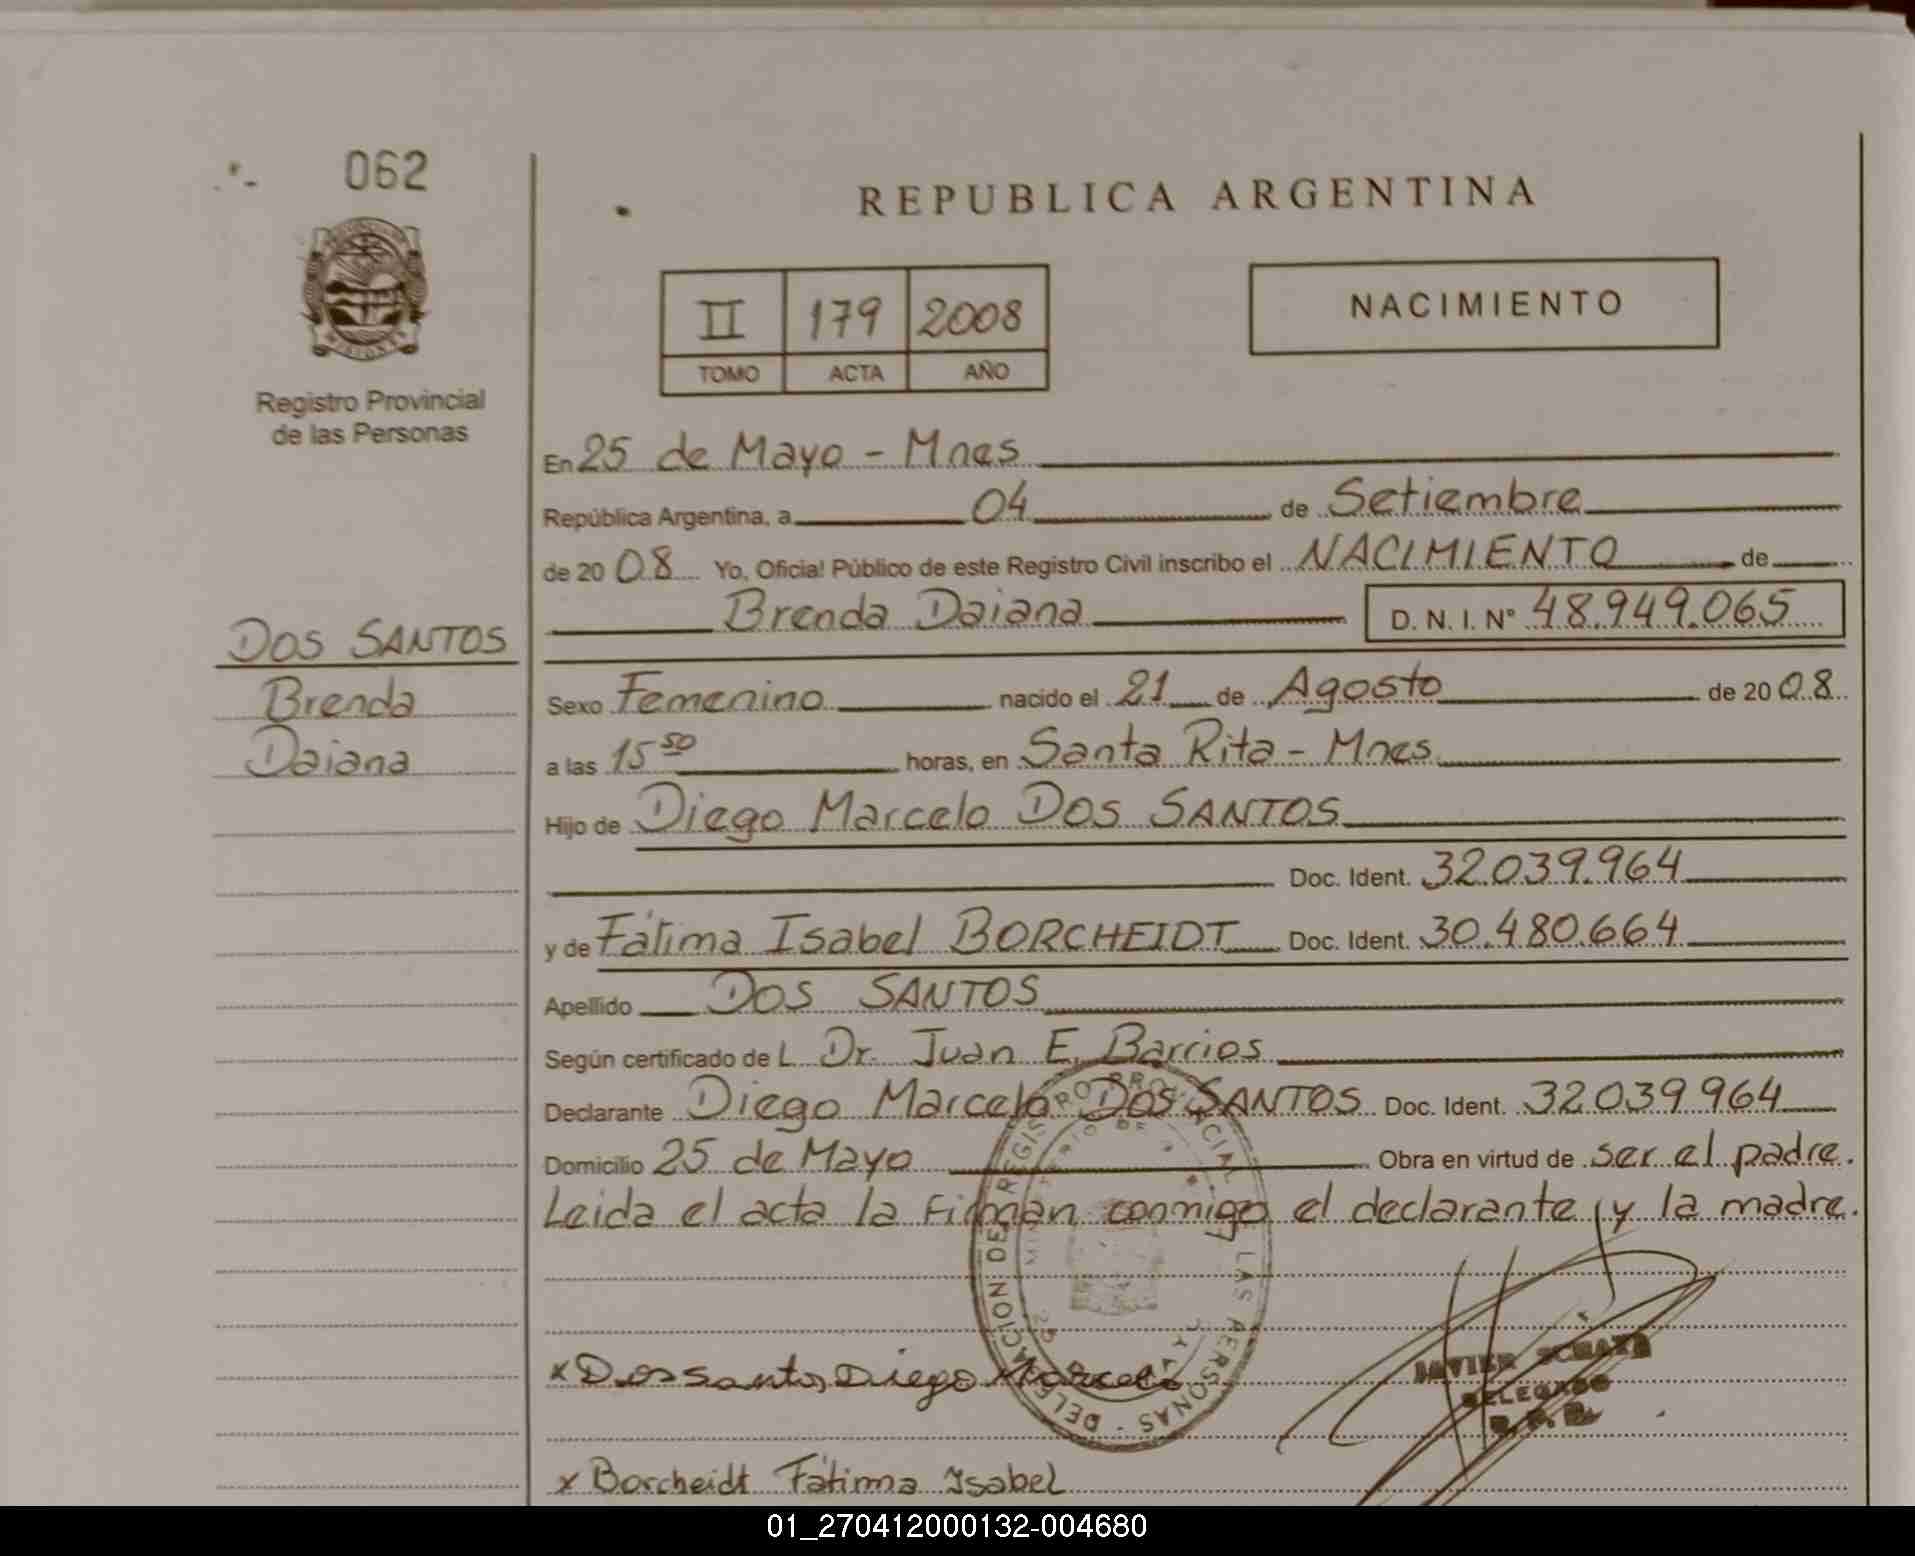 062
REPUBLICA ARGENTINA
II 179 2008
TOMO ACTA AÑO
NACIMIENTO
Registro Provincial
de las Personas
DOS SANTOS
Brenda
Daiana
En 25 de Mayo - Mnes
República Argentina, a 04 de Setiembre
de 20 08 Yo, Oficial Público de este Registro Civil inscribo el NACIMIENTO de
Brenda Daiana D. N. I. Nº 48.949.065
Sexo Femenino nacido el 21 de Agosto de 20 08
a las 15 50 horas, en Santa Rita - Mnes
Hijo de Diego Marcelo DOS SANTOS
Doc. Ident. 32.039.964
y de Fátima Isabel BORCHEIDT Doc. Ident. 30.480.664
Apellido DOS SANTOS
Según certificado de L Dr. Juan E. Barrios
Declarante Diego Marcelo DOS SANTOS Doc. Ident. 32039964
Domicilio 25 de Mayo Obra en virtud de ser el padre.
Leida el acta la Firman conmigo el declarante y la madre.
DELEGACION DE REGISTRO PROVINCIAL DE LAS PERSONAS
x Dos santos Diego Marcelo
JAVIER
DELEGADO
R. P. P.
x Borcheidt Fátima Isabel
01_270412000132-004680